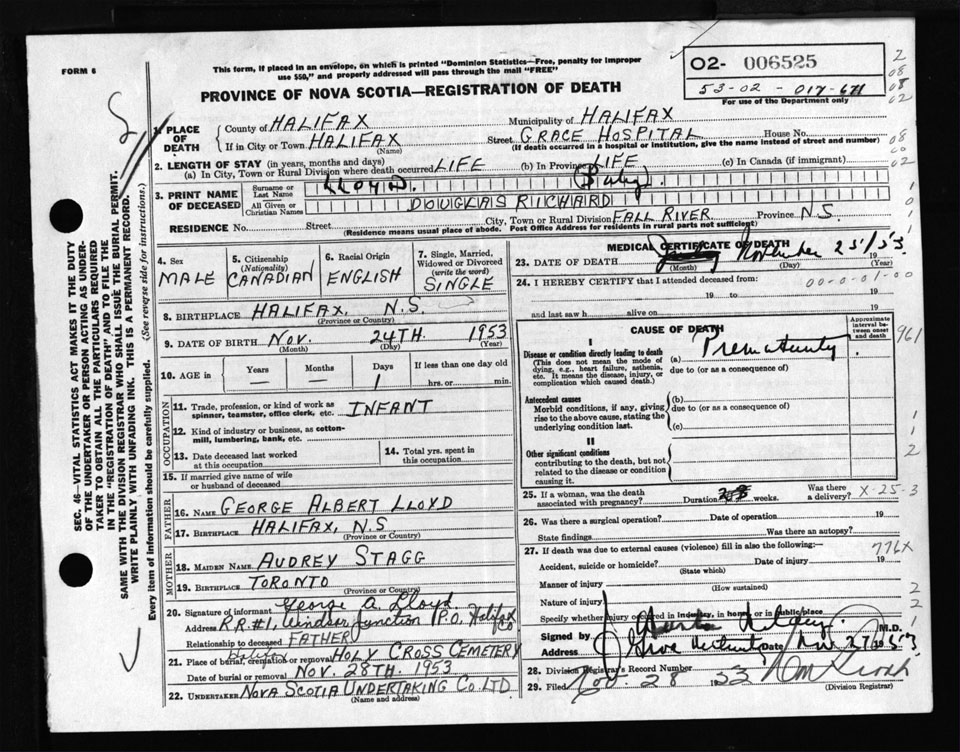 FORM 6
This form, if placed in an envelope, on which is printed "Dominion Statistics—Free, penalty for improper
use $50," and properly addressed will pass through the mail "FREE"
O2- 006525
53-02-017-671
For use of the Department only
PROVINCE OF NOVA SCOTIA—REGISTRATION OF DEATH
1. PLACE OF DEATH
County of HALIFAX Municipality of HALIFAX
If in City or Town HALIFAX Street GRACE HOSPITAL House No.
(Name) (If death occurred in a hospital or institution, give the name instead of street and number)
2. LENGTH OF STAY (in years, months and days)
(a) In City, Town or Rural Division where death occurred LIFE (b) In Province LIFE (c) In Canada (if immigrant)
3. PRINT NAME OF DECEASED
Surname or Last Name LLOYD (Baby)
All Given or Christian Names DOUGLAS RICHARD
RESIDENCE No. Street City, Town or Rural Division FALL RIVER Province N.S.
(Residence means usual place of abode. Post Office Address for residents in rural parts not sufficient)
4. Sex MALE
5. Citizenship (Nationality) CANADIAN
6. Racial Origin ENGLISH
7. Single, Married, Widowed or Divorced (write the word) SINGLE
8. BIRTHPLACE HALIFAX, N.S.
(Province or Country)
9. DATE OF BIRTH NOV. 24TH. 1953
(Month) (Day) (Year)
10. AGE in Years — Months — Days 1 If less than one day old hrs. or min.
OCCUPATION
11. Trade, profession, or kind of work as spinner, teamster, office clerk, etc. INFANT
12. Kind of industry or business, as cotton-mill, lumbering, bank, etc.
13. Date deceased last worked at this occupation
14. Total yrs. spent in this occupation
15. If married give name of wife or husband of deceased
FATHER
16. NAME GEORGE ALBERT LLOYD
17. BIRTHPLACE HALIFAX, N.S
(Province or Country)
MOTHER
18. MAIDEN NAME AUDREY STAGG
19. BIRTHPLACE TORONTO
(Province or Country)
20. Signature of informant George A. Lloyd
Address R.R.#1, Windsor Junction P.O. Halifax Co
Relationship to deceased FATHER
21. Place of burial, cremation or removal HOLY CROSS CEMETERY
Date of burial or removal NOV. 28TH. 1953
22. UNDERTAKER NOVA SCOTIA UNDERTAKING CO. LTD.
(Name and address)
MEDICAL CERTIFICATE OF DEATH
23. DATE OF DEATH November 25/53 19
(Month) (Day)
24. I HEREBY CERTIFY that I attended deceased from: 00-0-01-00
19 to 19
and last saw h alive on 19
CAUSE OF DEATH
Approximate interval between onset and death
I
Disease or condition directly leading to death
(This does not mean the mode of dying, e.g., heart failure, asthenia, etc. It means the disease, injury, or complication which caused death.)
(a) Prematurity
due to (or as a consequence of)
961
Antecedent causes
Morbid conditions, if any, giving rise to the above cause, stating the underlying condition last.
(b)
due to (or as a consequence of)
(c)
II
Other significant conditions
contributing to the death, but not related to the disease or condition causing it.
25. If a woman, was the death associated with pregnancy? Duration weeks. Was there a delivery? X-25-3
26. Was there a surgical operation? Date of operation 19
State findings Was there an autopsy?
27. If death was due to external causes (violence) fill in also the following:— 776X
Accident, suicide or homicide? Date of injury 19
(State which)
Manner of injury
(How sustained)
Nature of injury
Specify whether injury occurred in industry, in home, or in public place
Signed by M.D.
Address Grace Maternity Date Nov 27 1953
28. Division Registrar's Record Number
29. Filed Nov. 28 1953
(Division Registrar)
SEC. 46—VITAL STATISTICS ACT MAKES IT THE DUTY
OF THE UNDERTAKER OR PERSON ACTING AS UNDER-
TAKER TO OBTAIN ALL THE PARTICULARS REQUIRED
IN THE "REGISTRATION OF DEATH" AND TO FILE THE
SAME WITH THE DIVISION REGISTRAR WHO SHALL ISSUE THE BURIAL PERMIT.
WRITE PLAINLY WITH UNFADING INK. THIS IS A PERMANENT RECORD.
Every item of information should be carefully supplied. (See reverse side for instructions.)